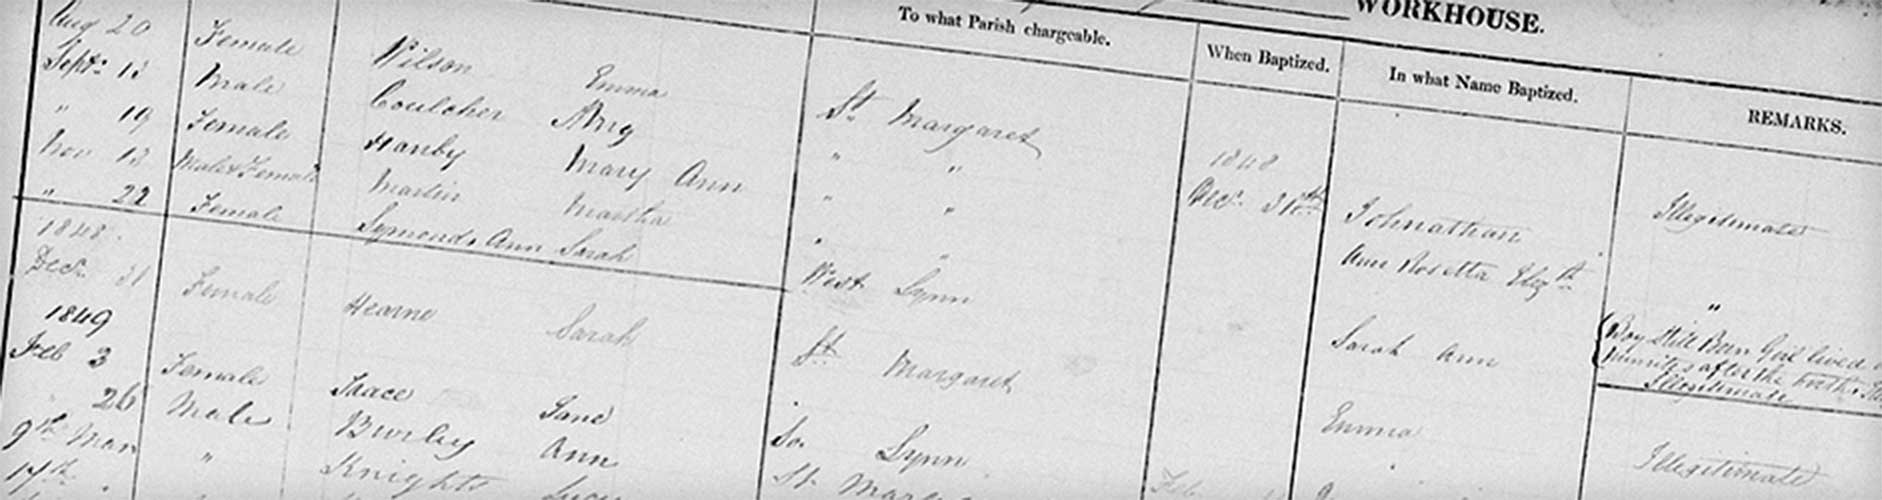 WORKHOUSE.
To what Parish chargeable. When Baptized. In what Name Baptized. REMARKS.
Aug 20 Female Wilson Emma St. Margaret
Septr. 13 Male Coulcher Amy " " 1848 Illegitimate
" 19 Female Hanby Mary Ann " " Decr. 31st Johnathan
Nov 13 Male & Female Martin Martha " " Ann Rosetta Elizth "
" 22 Female Symonds Ann Sarah West Lynn
1848.
Decr. 31 Female Hearne Sarah St. Margaret Sarah Ann Boy Still Born Girl lived
minutes after the birth
Illegitimate
1849
Feb 3 Female Jane So. Lynn Emma
26 Male Burley Ann St. Illegitimate
9th Mar " Knights Feb
17th